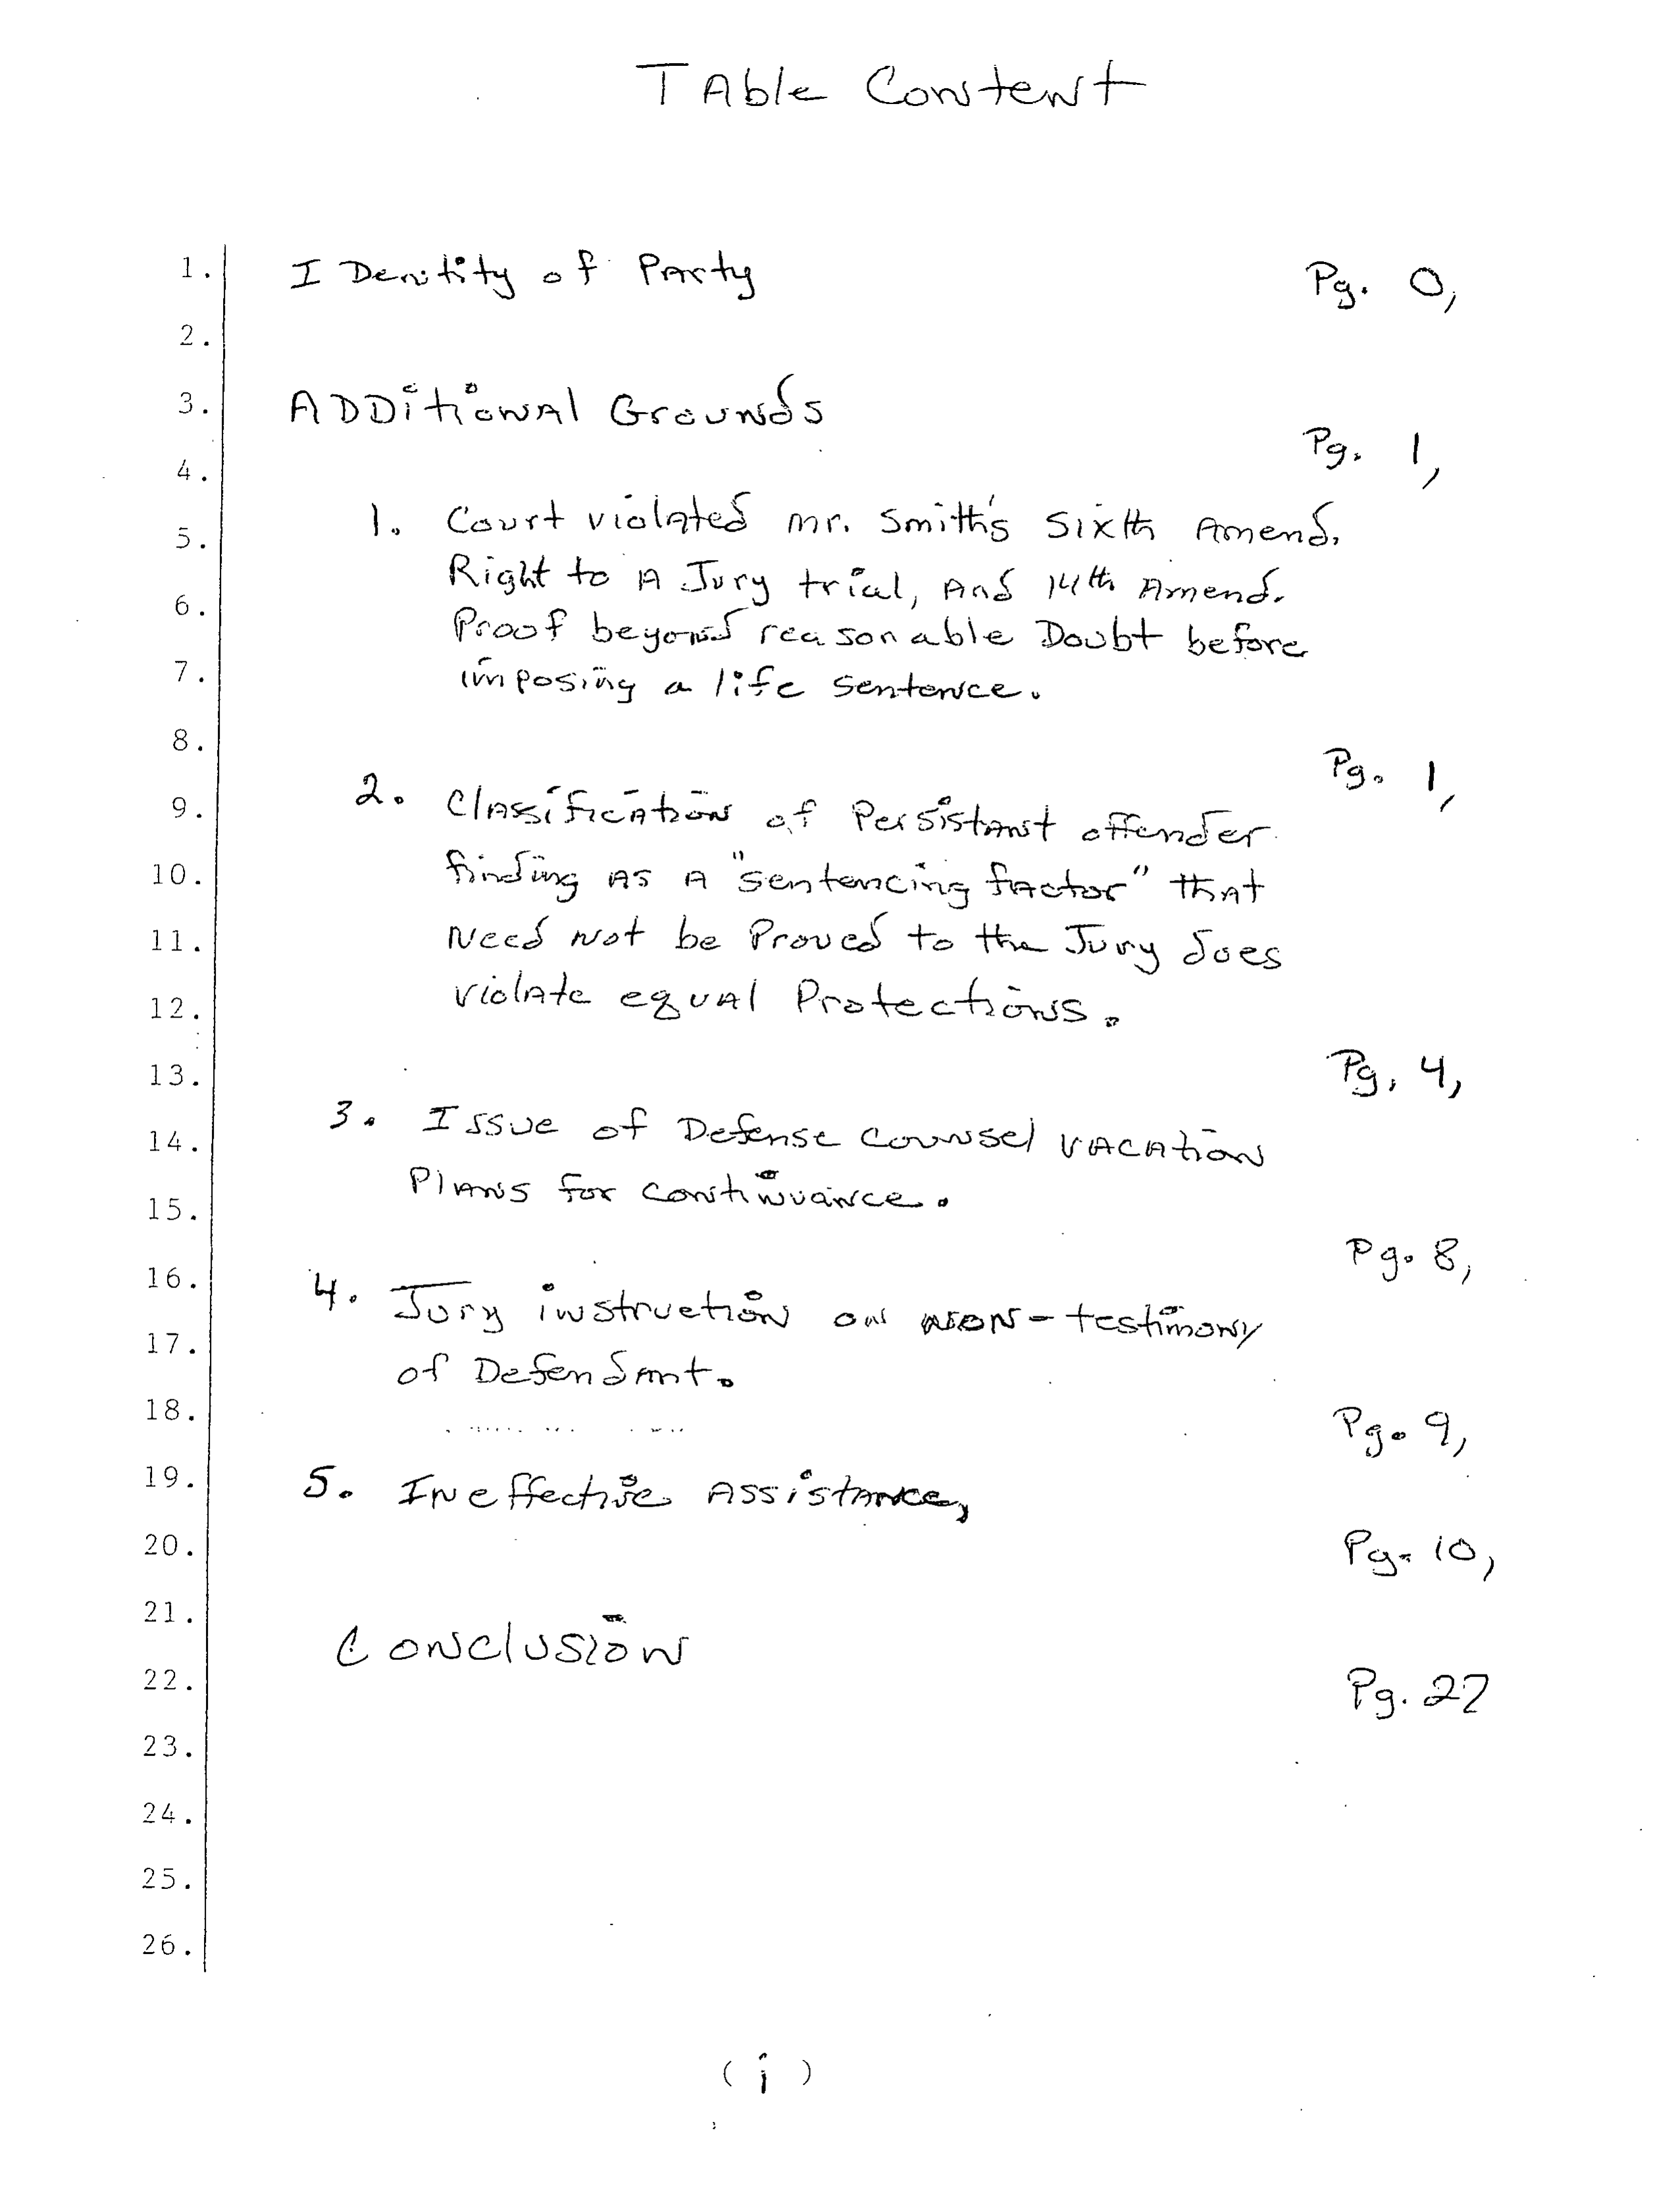 Table Content
1. I Dentity of Party Pg. 0,
2.
3. ADDitional Grounds
Pg. 1,
4.
1. Court violated mr. Smith's Sixth Amend.
5.
Right to A Jury trial, And 14th Amend.
6.
Proof beyond reasonable Doubt before
7.
imposing a life sentence.
8.
Pg. 1,
2. Classification of Persistant offender
9.
finding AS A "sentencing factor" that
10.
Need Not be Proved to the Jury does
11.
violate equal Protections.
12.
Pg. 4,
13.
3. Issue of Defense Counsel vacation
14.
Plans for continuance.
15.
Pg. 8,
16.
4. Jury instruction on NON-testimony
17.
of Defendant.
18.
Pg. 9,
19.
5. Ineffective Assistance,
20.
Pg. 10,
21.
Conclusion
22.
Pg. 22
23.
24.
25.
26.
(i)